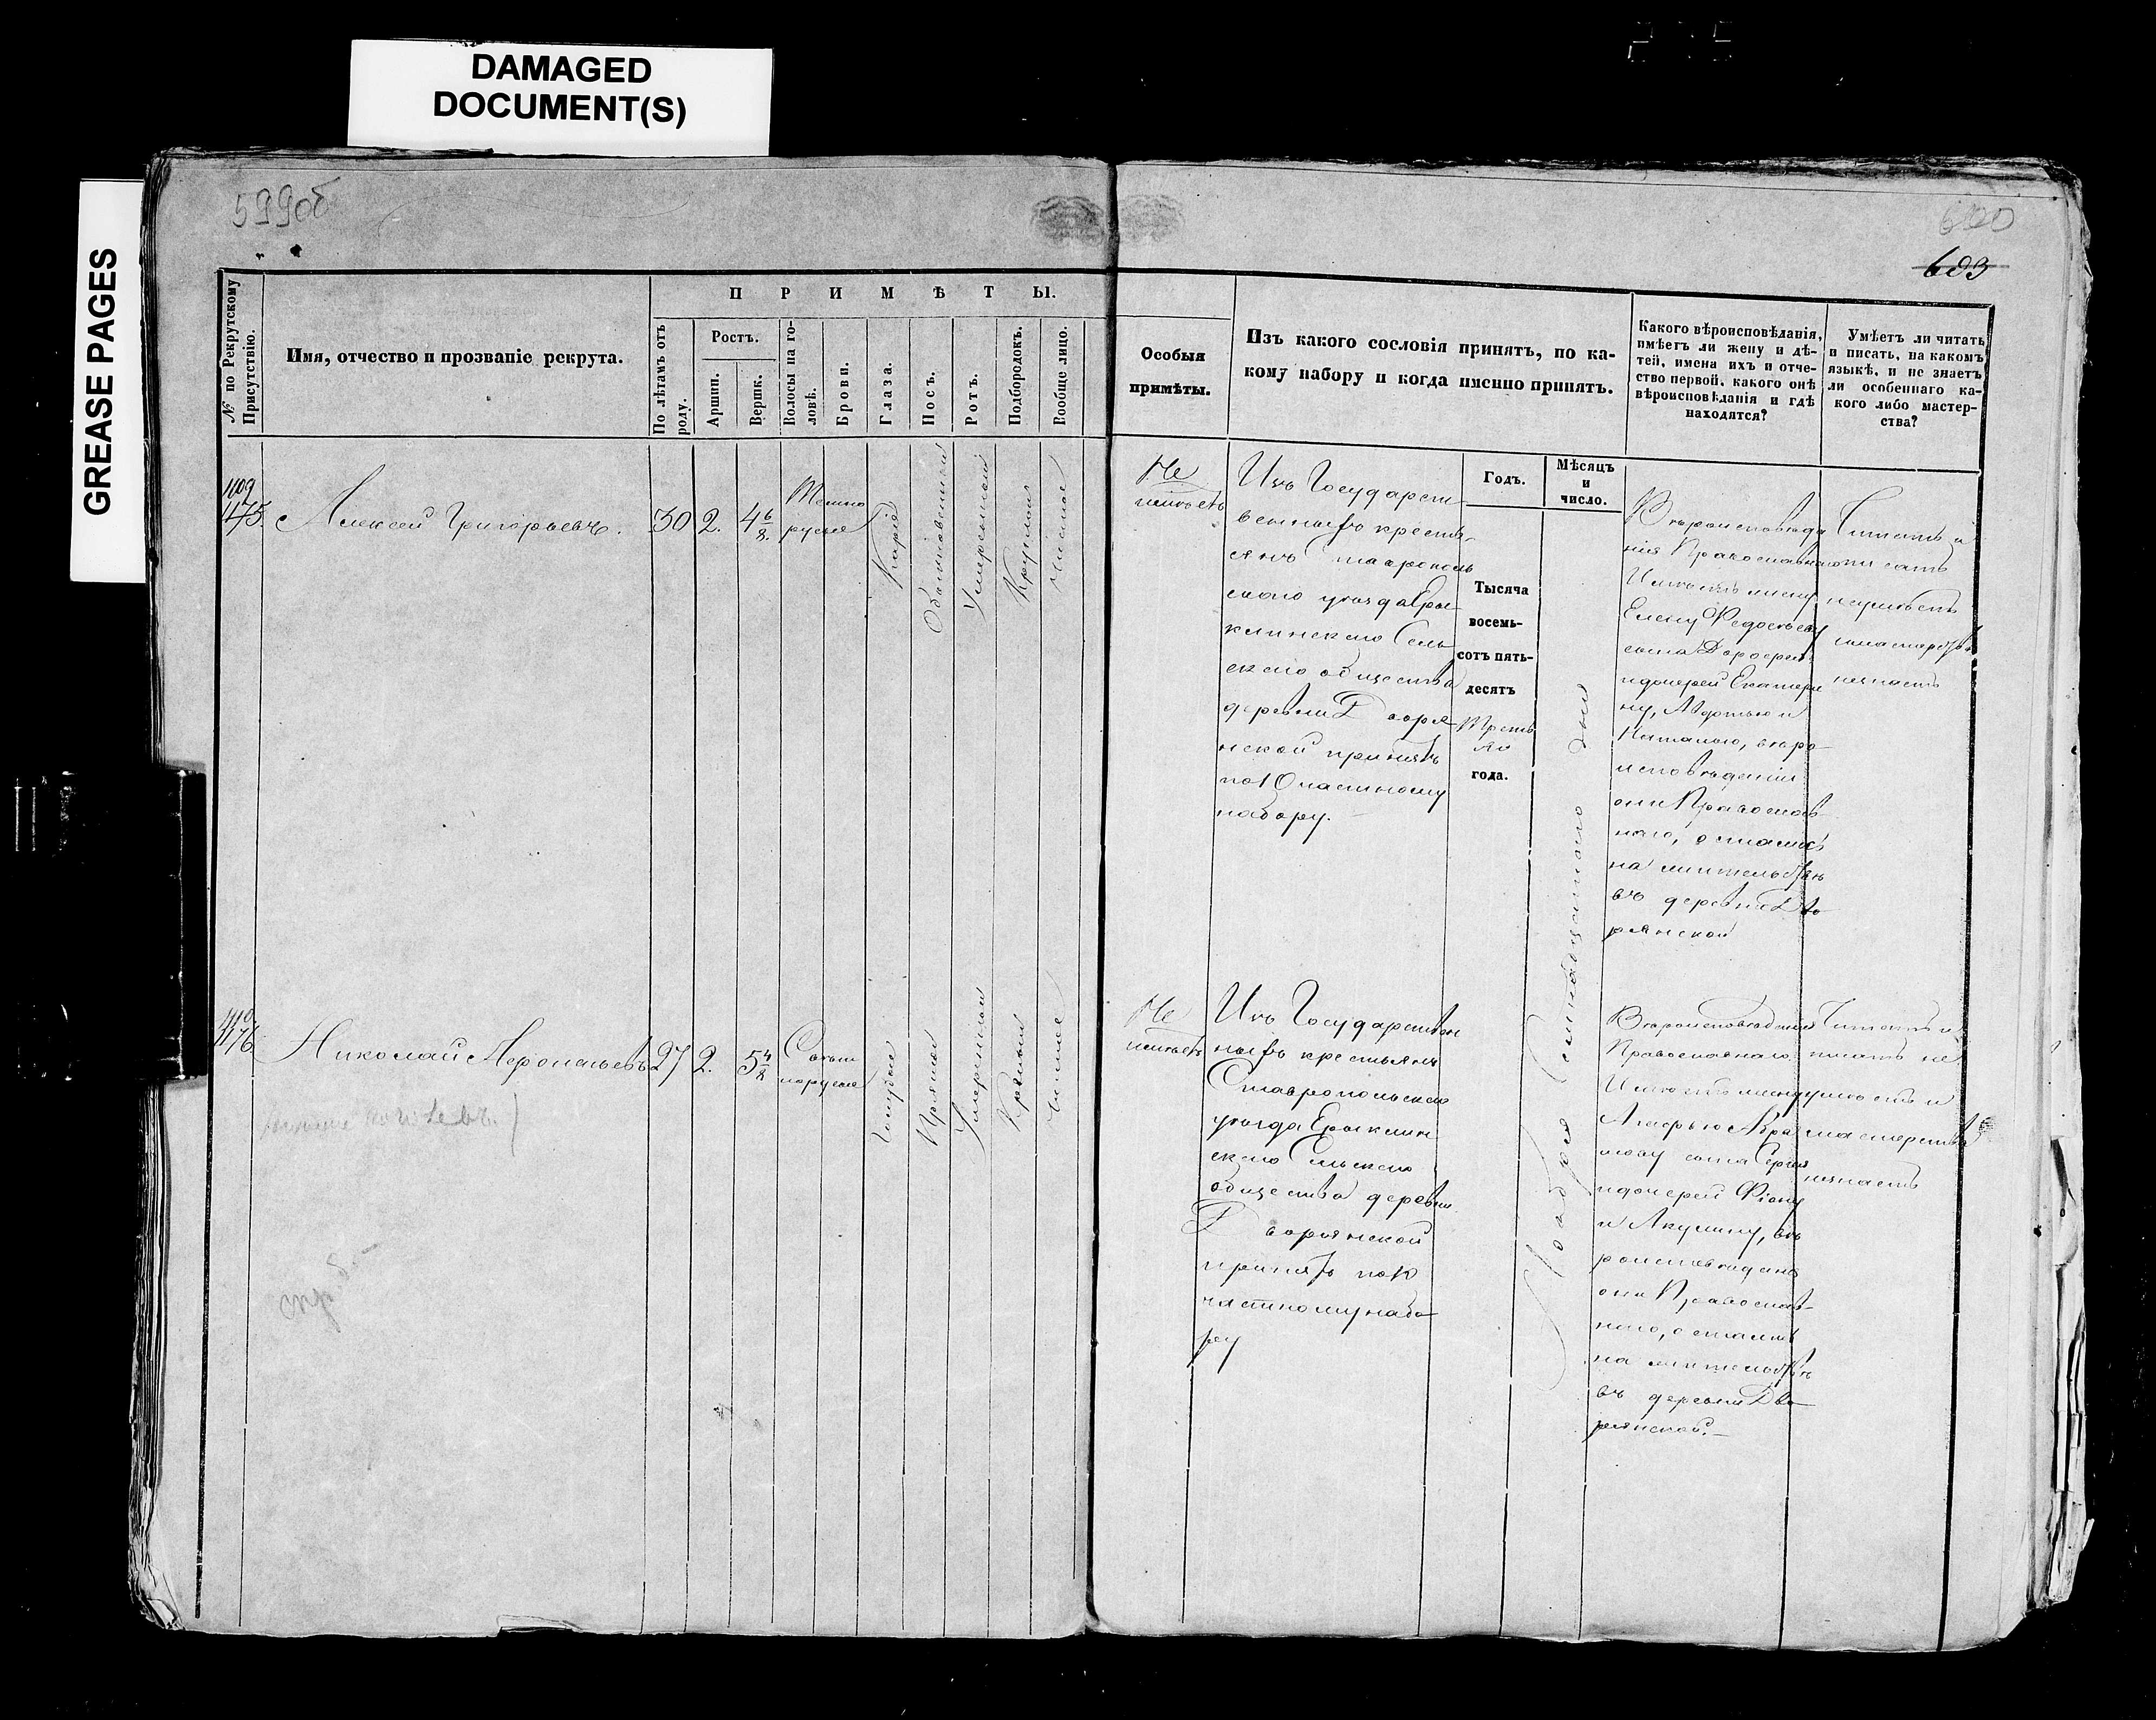 DAMAGED
DOCUMENT(S)
GREASE PAGES
599об
600
603
№ по Рекрутскому
Присутствію.
Имя, отчество и прозваніе рекрута.
ПРИМѢТЫ.
По лѣтамъ отъ
роду.
Ростъ.
Аршин.
Вершк.
Волосы на го-
ловѣ.
Брови.
Глаза.
Носъ.
Ротъ.
Подбородокъ.
Вообще лицо.
Особыя
примѣты.
Изъ какого сословія принятъ, по ка-
кому набору и когда именно принятъ.
Какого вѣроисповѣданія,
имѣетъ ли жену и дѣ-
тей, имена ихъ и отче-
ство первой, какого онѣ
вѣроисповѣданія и гдѣ
находятся?
Умѣетъ ли читать
и писать, на какомъ
языкѣ, и не знаетъ
ли особеннаго ка-
кого либо мастер-
ства?
Годъ.
Мѣсяцъ
и
число.
1109
1175.
Алексей Григорьевъ.
30
2.
4 6/8.
Темно
русыя
Каріе
Обыкновенный
Умеренный
Круглый
Чистое
Не
имѣетъ
Изъ Государст-
венныхъ кресть-
янъ Ставрополь
скаго уѣзда Еры-
клинскаго Сель
скаго общества
деревни Дворя
нской принятъ
по 10 частному
набору.
Тысяча
восемь-
сотъ пять-
десятъ
Треть
яго
года.
Ноября Семнадцатого дня
Вѣроисповѣда
нія Православнаго
Имѣетъ жену
Елену Федосѣеву
сына Дорофея
и дочерей Екатери
ну, Авдотью и
Наталью, вѣро-
исповѣданія
они Православ-
наго, остались
на жительствѣ
въ деревнѣ Дво
рянской
Читать и
писать
неумѣетъ
и мастерства
незнаетъ
1110.
1176.
Николай Мефодьевъ
27
2.
5 4/8
Свѣтло
русые
Голубые
Прямой
Умеренный
Круглый
Чистое
Не
имѣетъ
Изъ Государствен
ныхъ крестьянъ
Ставропольскаго
уѣзда Ерыклин
скаго Сельскаго
общества деревни
Дворянской
принятъ по 10
частному набо
ру
Вѣроисповѣданія
Православнаго
Имѣетъ жену
Агафью Абра
мову сына Сергея
и дочерей Фіону
и Акулину, вѣ
роисповѣданія
они Православ-
наго, остались
на жительствѣ
въ деревни Дво
рянской.
Читать и
писать не
умѣетъ и
мастерства
незнаетъ